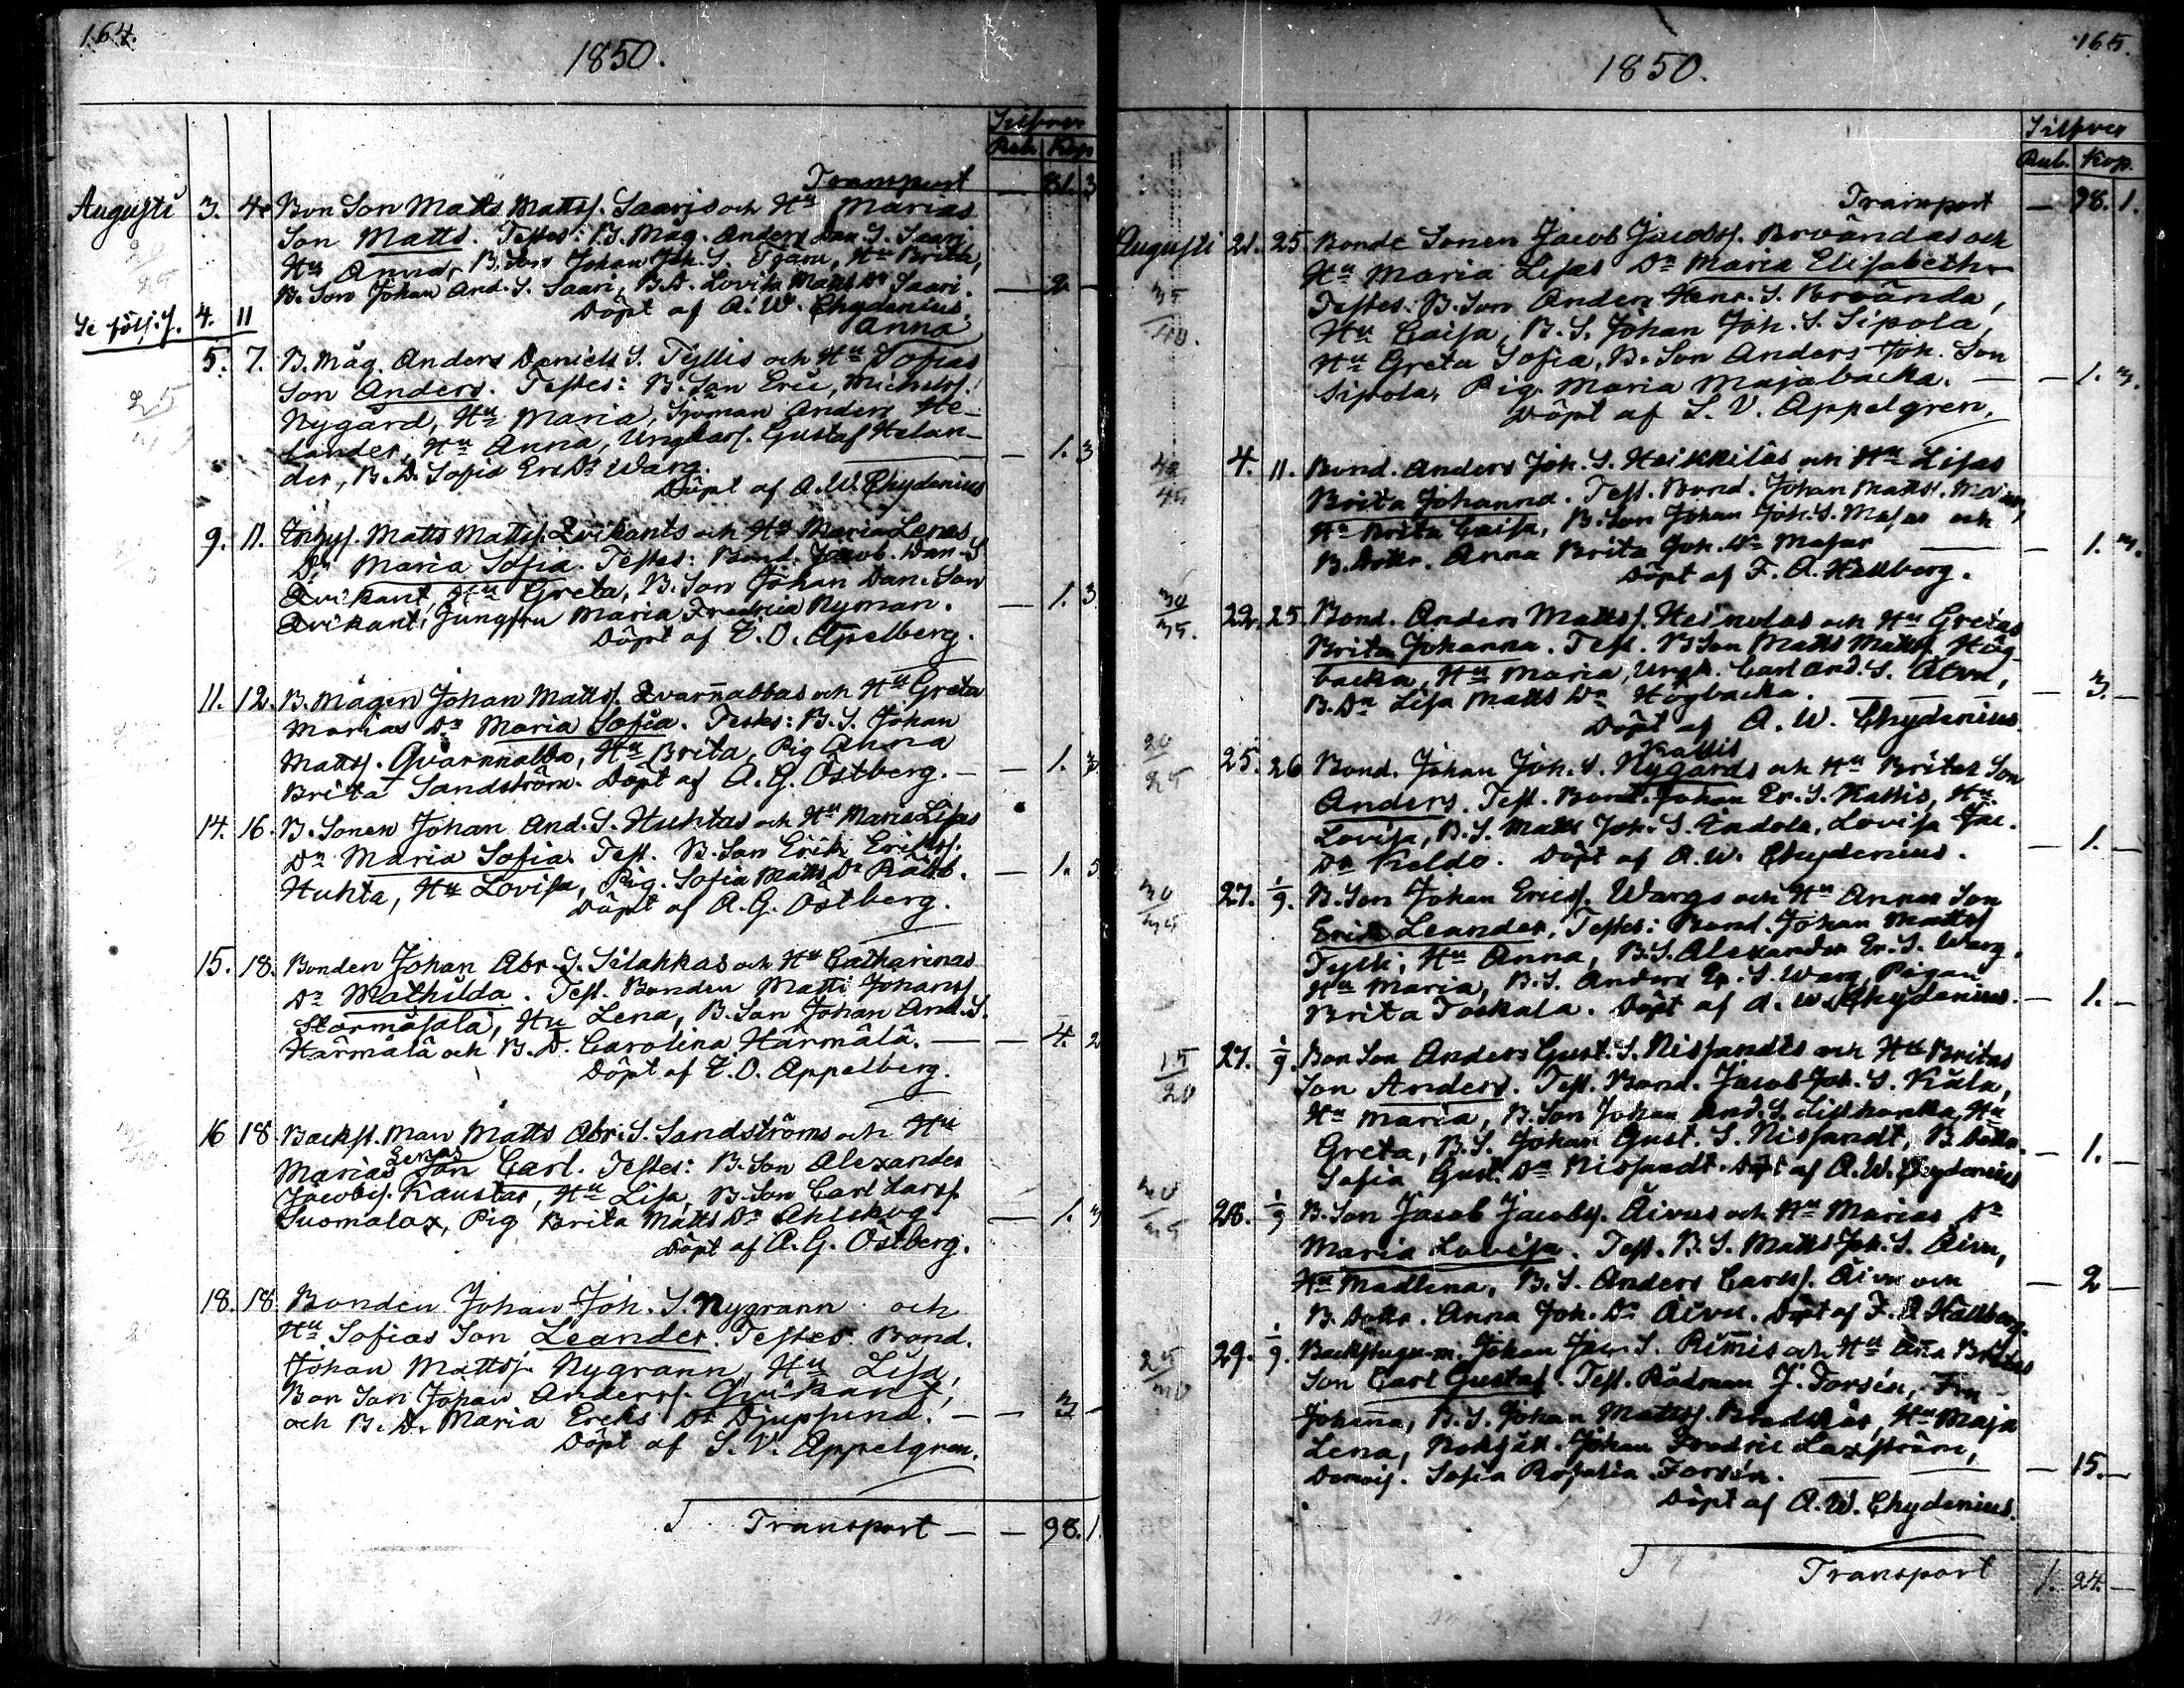 164.
1850.
Silfver
Rub. Kop
Transport — 81. 3
Augusti 3. 4. Bon Son Matts Mattss. Saaris och Hu Marias
Son Matts. Testes: B. Mag. Anders Dan. S. Saari,
Hu Anna, B. Son Johan Joh. S. Hu Brita,
B. Son Johan And. S. Saari, B.D. Lovisa Matts Dr Saari. — 2 —
Döpt af A. W. Chydenius.
Se följ. S. 4. 11
Anna
5. 7. B. Måg. Anders Daniels S. Tyllis och Hu Sofias
Son Anders. Testes: B. Son Eric Michelss.
Nygård, Hu Maria, Sjöman Anders He-
lander, Hu Anna, Ungkarl. Gustaf Helan-
der, B.D. Sofia Eric Dr Warg. — 1. 3
Döpt af A. W. Chydenius
9. 11. Inhys. Matts Mattss. Qvikants och Hu Maria Lenas
Dr Maria Sofia. Testes: Bond. Jacob Dan. S
Qvikant, Hu Greta, B. Son Johan Dan. Son
Qvikant, Jungfru Maria Fredrica Nyman. — 1. 3
Döpt af Z. O. Appelberg.
11. 12. B. Mågen Johan Mattss. Qvarnabbas och Hu Greta
Marias Dr Maria Sofia. Testes: B. S. Johan
Mattss. Qvarnnabba, Hu Brita, Pig Anna
Brita Sandström. Döpt af A. G. Östberg. — — 1. 3
14. 16. B. Sonen Johan And. S. Huhtas och Hu Maria Lisas
Dr Maria Sofia. Test. B. Son Erik Erikss.
Huhta, Hu Lovisa, Pig. Sofia Matts Dr Rått. — 1. 5
Döpt af A. G. Östberg.
15. 18. Bonden Johan Abr. S. Silakkas och Hu Catharinas
Dr Mathilda. Test. Bonden Matts Johanss.
Stormåsala, Hu Lena, B. Son Johan And. S.
Härmälä och B. D. Carolina Härmälä. — — 4. 2
Döpt af Z. O. Appelberg.
16 18 Backst. Man Matts Abr. S. Sandströms och Hu
Lenas
Marias Son Carl. Testes: B. Son Alexander
Jacobss. Kaustar, Hu Lisa, B. Son Carl Larss.
Suomalax, Pig Brita Matts Dr Ahlskog. — 1. 3
Döpt af A. G. Östberg.
18. 18 Bonden Johan Joh. S. Nygrann och
Hu Sofias Son Leander. Testes. Bond.
Johan Mattss. Nygrann, Hu Lisa,
Bon Son Johan Anderss. Qvikant,
och B. D. Maria Ericks Dr Djupsund. — — 3 —
Döpt af S. V. Appelgren.
Transport — — 98. 1
165.
1850.
Silfver
Rub. Kop.
Transport — 98. 1.
Augusti 21. 25 Bonde Sonen Jacob Jacobss. Brvändas och
Hu Maria Lisas Dr Maria Elisabeth
Testes: B. Son Anders Henr. S. Brvända,
Hu Caisa, B. S. Johan Joh. S. Sipola,
Hu Greta Sofia, B. Son Anders Joh. Son
Sipola, Pig. Maria Majabacka. — — 1. 3.
Döpt af S. V. Appelgren.
4. 11. Bond. Anders Joh. S. Heikkiläs och Hu Lisas
Brita Johanna. Test. Bond. Johan Mattss.
Hu Brita Caisa, B. Son Johan Joh. S. Masar och
B. Dottr. Anna Brita Joh. Dr Masar — — 1. 3.
Döpt af F. A. Hällberg.
22. 25 Bond. Anders Mattss. Heinolas och Hu Gretas
Brita Johanna. Test. B Son Matts Mattss. Hög-
backa, Hu Maria, Ungk. Carl And. S. Äivu,
B. Dr Lisa Matts Dr Högbacka. — 3. —
Döpt af A. W. Chydenius.
Kattis
25. 26 Bond. Johan Joh. S. Nygårds och Hu Britas Son
Anders. Test. Bond. Johan Er. S. Kattis, Hu
Lovisa, B. S. Matts Joh. S. Indola, Lovisa Jac.
Dr Keldo. Döpt af A. W. Chydenius. — 1. —
27. 1/9. B. Son Johan Ericss. Wargs och Hu Annas Son
Erik Leander. Testes: Bond. Johan Mattss
Tylli, Hu Anna, B. S. Alexander Er. S. Warg,
Hu Maria, B. S. Anders Er. S. Warg, Pigan
Brita Toskala. Döpt af A. W. Chydenius. — 1. —
27. 1/9. Bon Son Anders Gust. S. Nissandts och Hu Britas
Son Anders. Test. Bond. Jacob Joh. S. Kåla,
Hu Maria, B. Son Johan And. S. Hu
Greta, B. S. Johan Gust. S. Nissandt, B. Dottr.
Sofia Gust. Dr Nissandt. Döpt af A. W. Chydenius — 1. —
28. 1/9 B. Son Jacob Jacobss. Äivus och Hu Marias Dr
Maria Lovisa. Test. B. S. Matts Joh. S. Äivu,
Hu Madlena, B. S. Anders Carlss. Äivu och — 2 —
B. Dottr. Anna Joh. Dr Äivu. Döpt af F. A. Hällberg.
29. 1/9. Backstugu-m. Johan Jac. S. Rimis och Hu Ana Britas
Son Carl Gustaf. Test. Rådman J. Forsén, Fru
Johana, B. S. Johan Mattss. Hu Maja
Lena, Bokhåll. Johan Fredric Laxström,
Demois. Sofia Rosalia Forsén. — 15. —
Döpt af A. W. Chydenius.
Transport 1. 24. —